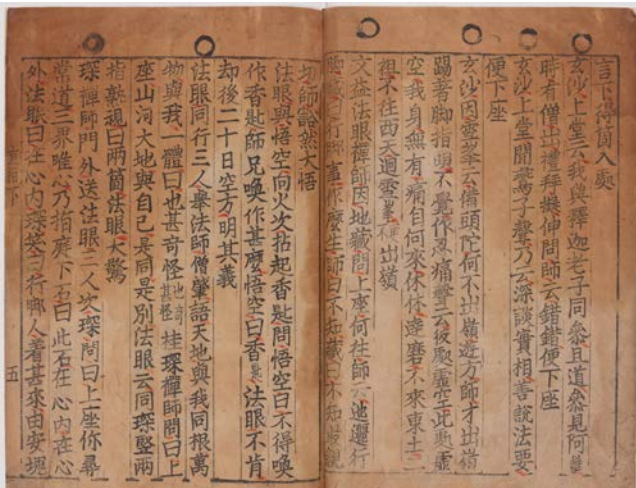 言下得箇入處
玄沙上堂云我與釋迦老子同參且道參見阿誰
時有僧出禮拜擬伸問師云錯錯便下座
玄沙上堂聞鷰子聲乃云深談實相善說法要
便下座
玄沙因雪峯云備頭陀何不出嶺遊方師才出嶺
踢着脚指頭不覺作忍痛聲云彼處虛空此處虛
空我身無有痛自何來休休達磨不來東土二
祖不往西天迴雪峯 出嶺
文益法眼禪師因地藏問上座何往師云迤邐行
脚藏云行脚事作麼生師曰不知藏曰不知最親
切師豁然大悟
法眼與悟空向火次拈起香匙問悟空曰不得喚
作香匙師兄喚作甚麽悟空曰香匙法眼不肯
却後二十日空方明其義
法眼同行三人擧法師僧肇語天地與我同根萬
物與我一體曰也甚奇怪也奇甚怪桂琛禪師問曰上
座山河大地與自己是同是別法眼云同琛竪兩
指熟視曰兩箇法眼大驚
琛禪師門外送法眼二人次琛問曰上座你尋
常道三界唯心乃指庭下石曰此石在心內在心
外法眼曰在心內琛笑云行脚人着甚來由安塊
五